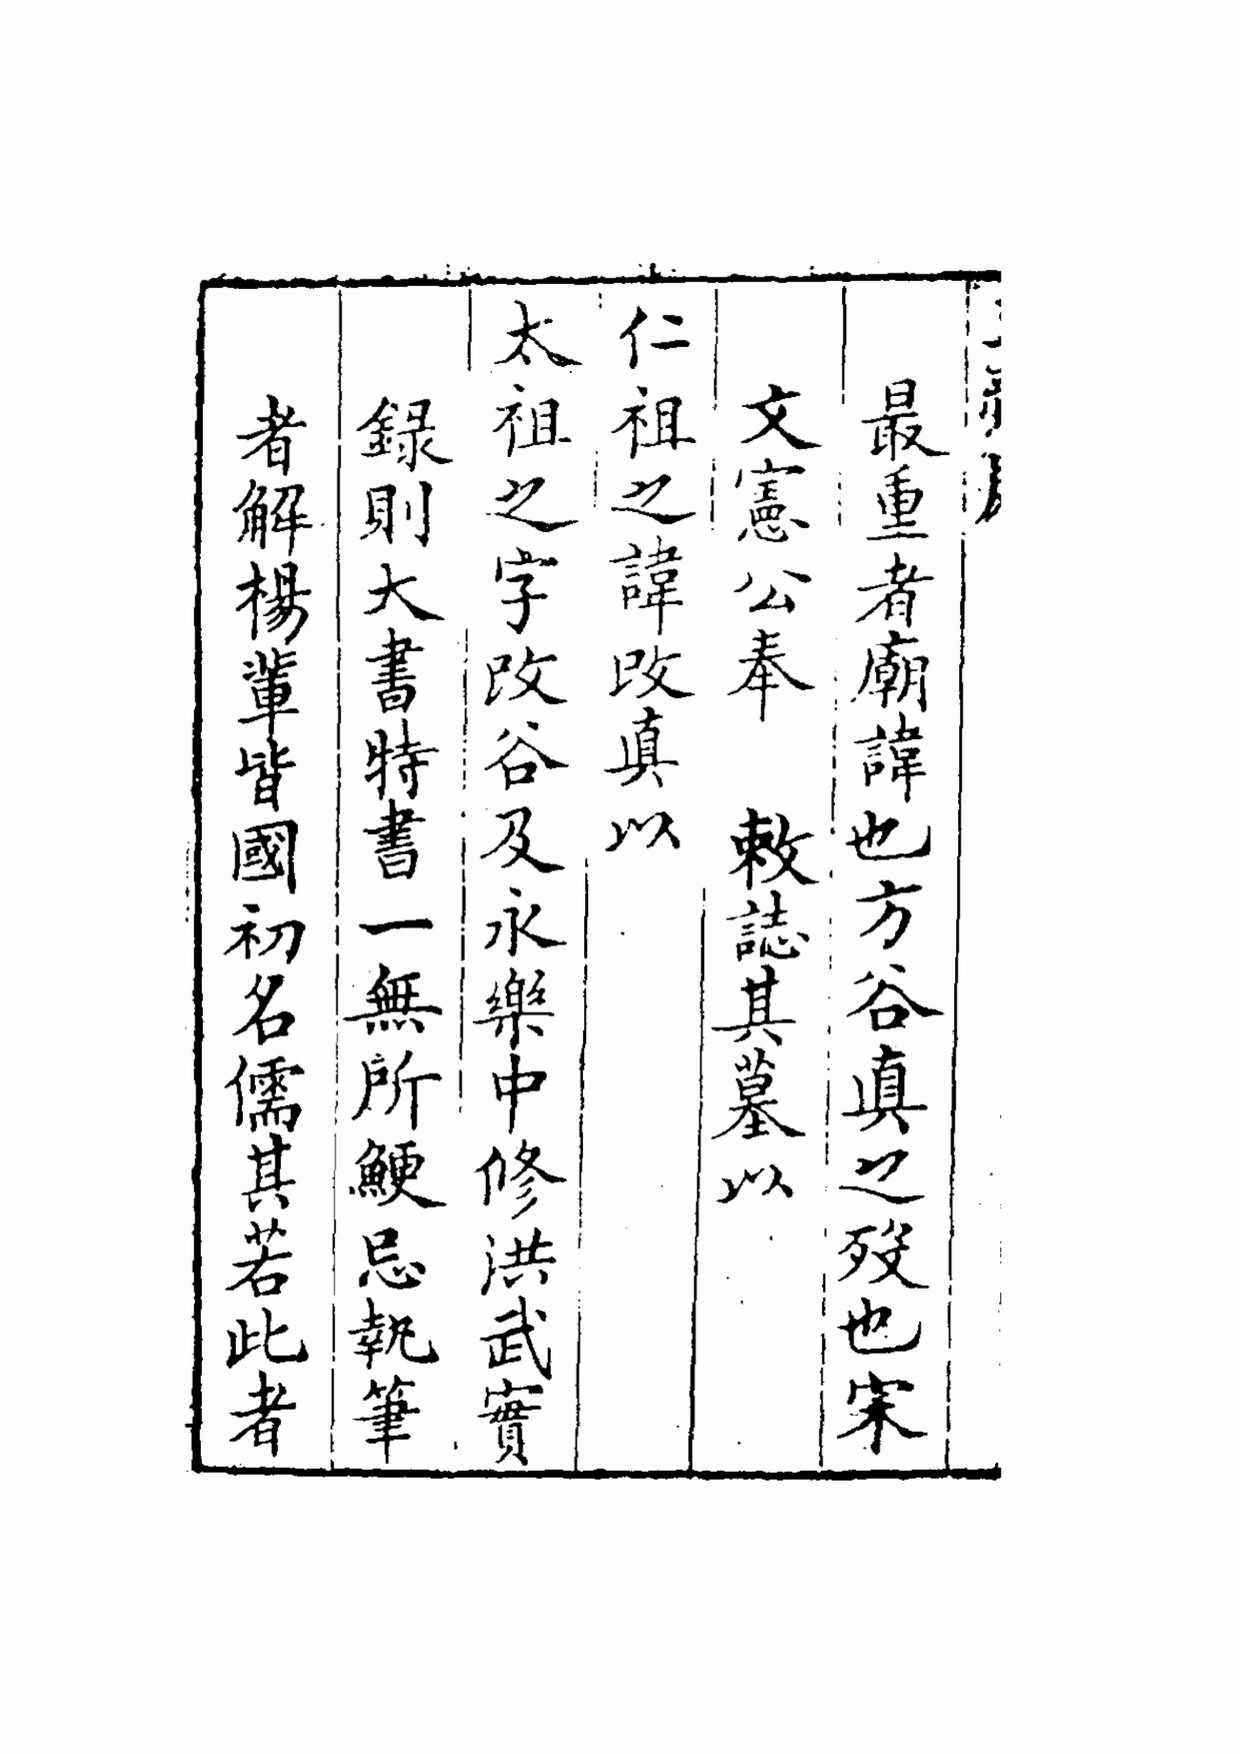 最重者廟諱也方谷真之歿也宋
文憲公奉　敕誌其墓以
仁祖之諱改真以
太祖之字改谷及永樂中修洪武實
錄則大書特書一無所鯁忌執筆
者解楊輩皆國初名儒其若此者